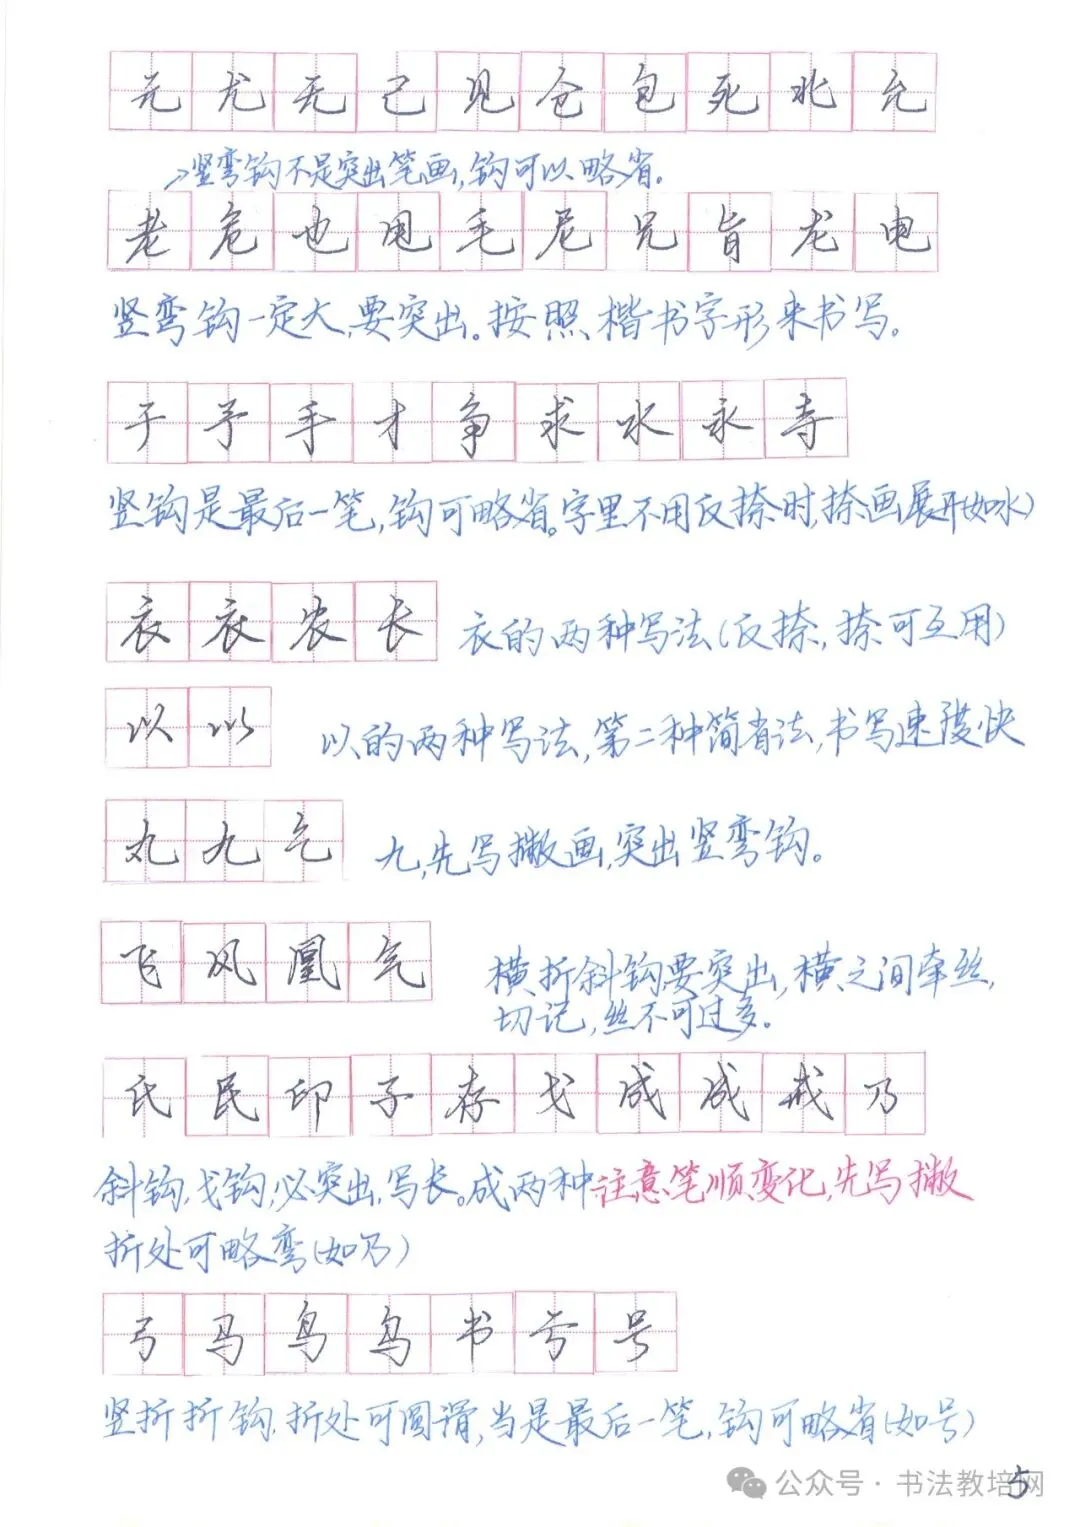 元 尤 无 己 见 仓 包 死 北 允
竖弯钩不是突出笔画,钩可以略省。
老 危 也 甩 毛 尼 兄 旨 龙 电
竖弯钩一定大,要突出。按照楷书字形来书写。
于 予 手 才 争 求 水 永 寺
竖钩是最后一笔,钩可略省。字里不用反捺时,捺画展开(如水)
衣 衣 农 长 衣的两种写法(反捺,捺可互用)
以 以 以的两种写法,第二种简省法,书写速度快
丸 九 乞 九,先写撇画,突出竖弯钩。
飞 风 凰 气 横折斜钩要突出,横之间牵丝,
切记,丝不可过多。
氏 民 印 子 存 戈 成 成 戒 乃
斜钩,戈钩,必突出,写长。成两种注意笔顺变化,先写撇
折处可略弯(如乃)
弓 马 鸟 鸟 书 号 号
竖折折钩,折处可圆滑,当是最后一笔,钩可略省(如号)
公众号·书法教培网
5